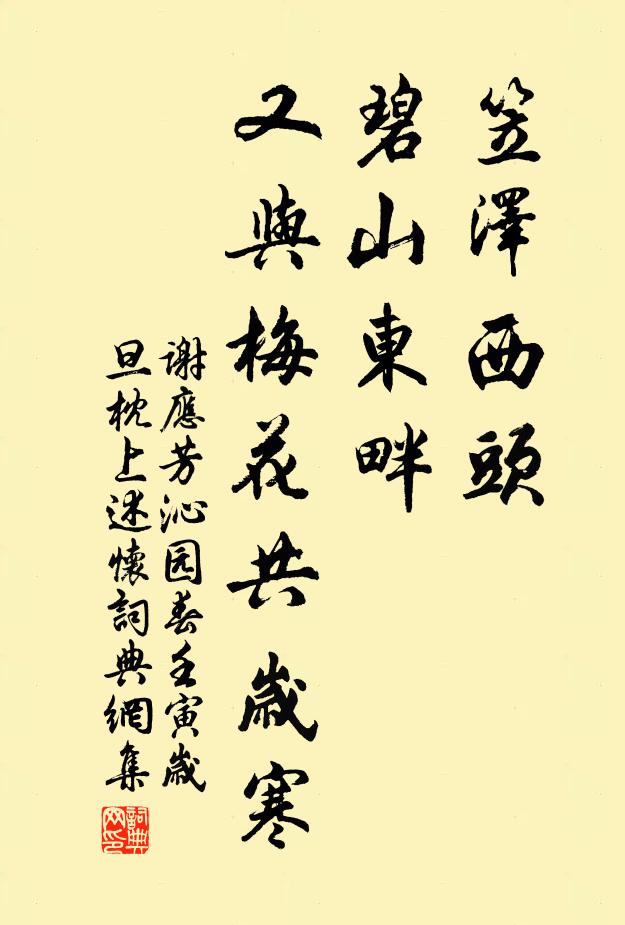 笠澤西頭
碧山東畔
又與梅花共歲寒
謝應芳沁园春壬寅歲
旦枕上述懷詞典網集
詞典网印